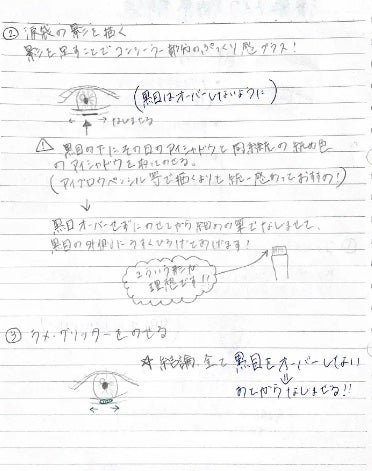 ② 涙袋の影を描く
影を足すことでコンシーラー部分のぷっくり感プラス!
(黒目はオーバーしないように)
なじませる
① 黒目の下にその日のアイシャドウと同系統の締め色
のアイシャドウを取ってのせる。
(アイブロウペンシル等で描くよりも統一感あっておすすめ!)
黒目オーバーせずにのせてから細めの筆でなじませて、
黒目の外側にうすくひろげてあげます!
こういう形が
理想です!!
③ ラメ・グリッターをのせる
☆結論、全て黒目をオーバーしない
のせてからなじませる!!